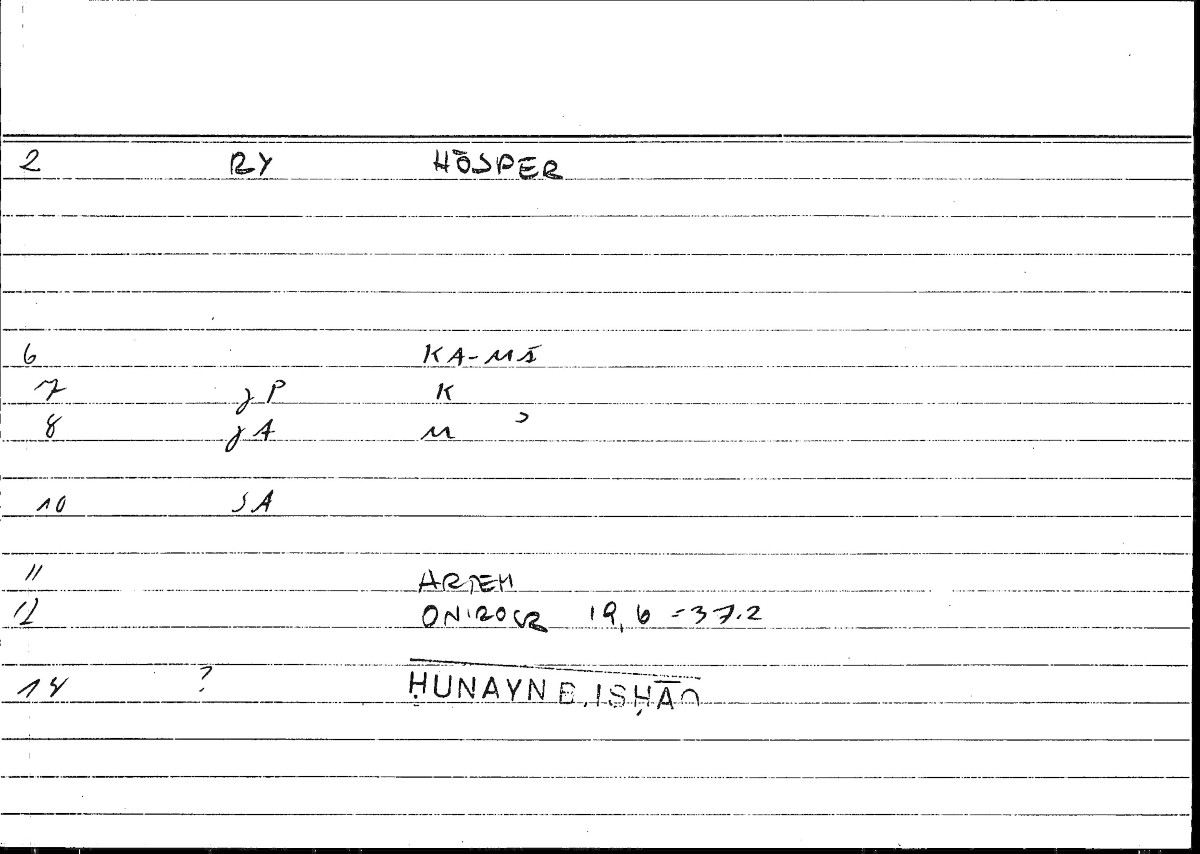 2 RY HŌSPER
6 KA-MŠ
7 γP K
8 γA M ʾ
10 SA
11 ARTEM
12 ONIROCR 19,6 =37.2
14 ? ḤUNAYN B. ISḤĀQ